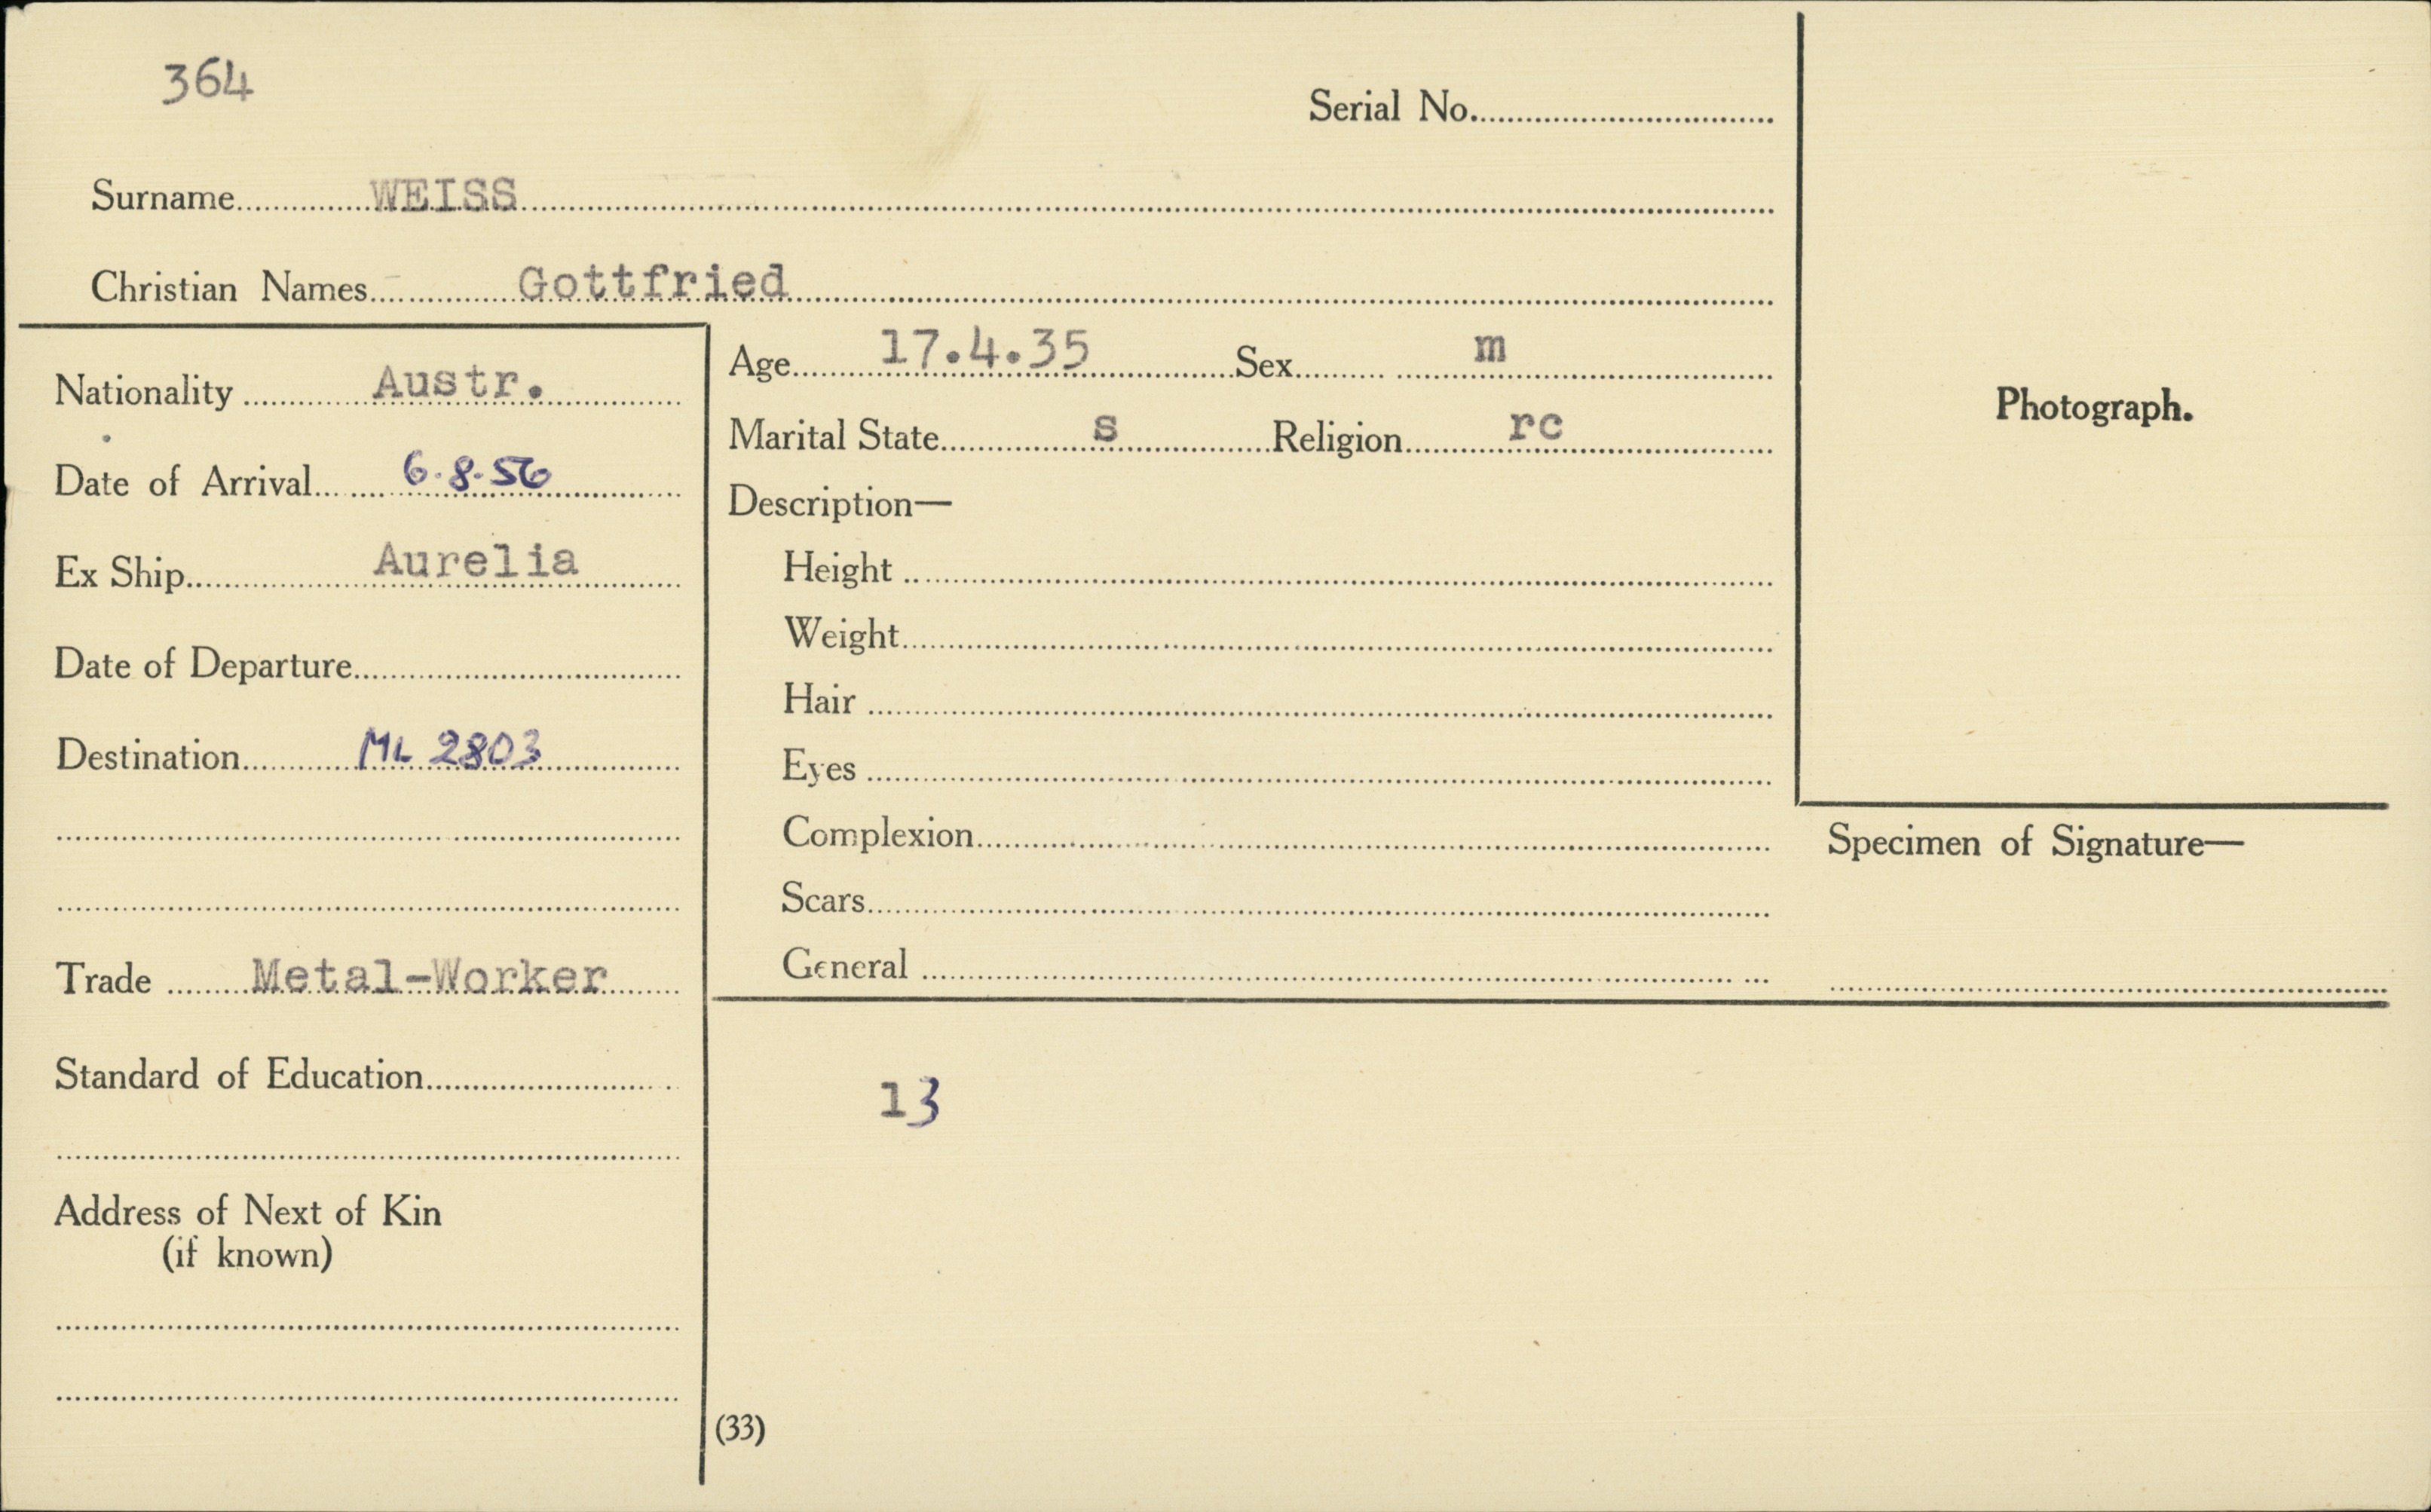 364
Serial No.
Surname WEISS
Christian Names Gottfried
Nationality Austr.
Date of Arrival 6.8.56
Ex Ship Aurelia
Date of Departure
Destination ML 2803
Trade Metal-Worker
Standard of Education
Address of Next of Kin
(if known)
Age 17.4.35 Sex m
Marital State s Religion rc
Description—
Height
Weight
Hair
Eyes
Complexion
Scars
General
13
(33)
Photograph.
Specimen of Signature—